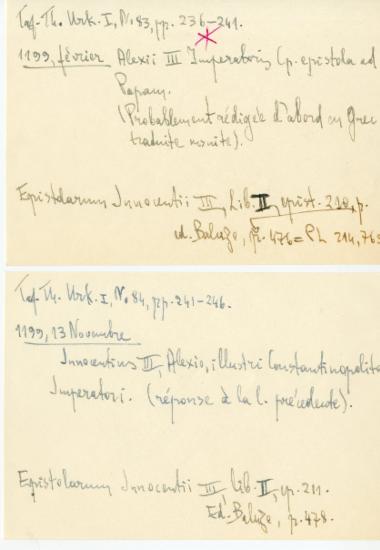 Taf.-Th. Urk. I, N. 83, pp. 236-241.
1199, février Alexii III Imperatoris Cp. epistola ad
Papam.
(Probablement rédigée d'abord en Grec
traduite ensuite).
Epistolarum Innocentii III, Lib. II, epist. 210, p.
ed. Baluze, p. 476 = PL 214, 765
Taf. Th. Urk. I, N. 84, pp. 241-246.
1199, 13 Novembre
Innocentius III, Alexio, illustri Constantinopolita
Imperatori. (réponse à la l. précédente).
Epistolarum Innocentii III, Lib. II, ep. 211.
Ed. Baluze, p. 478.